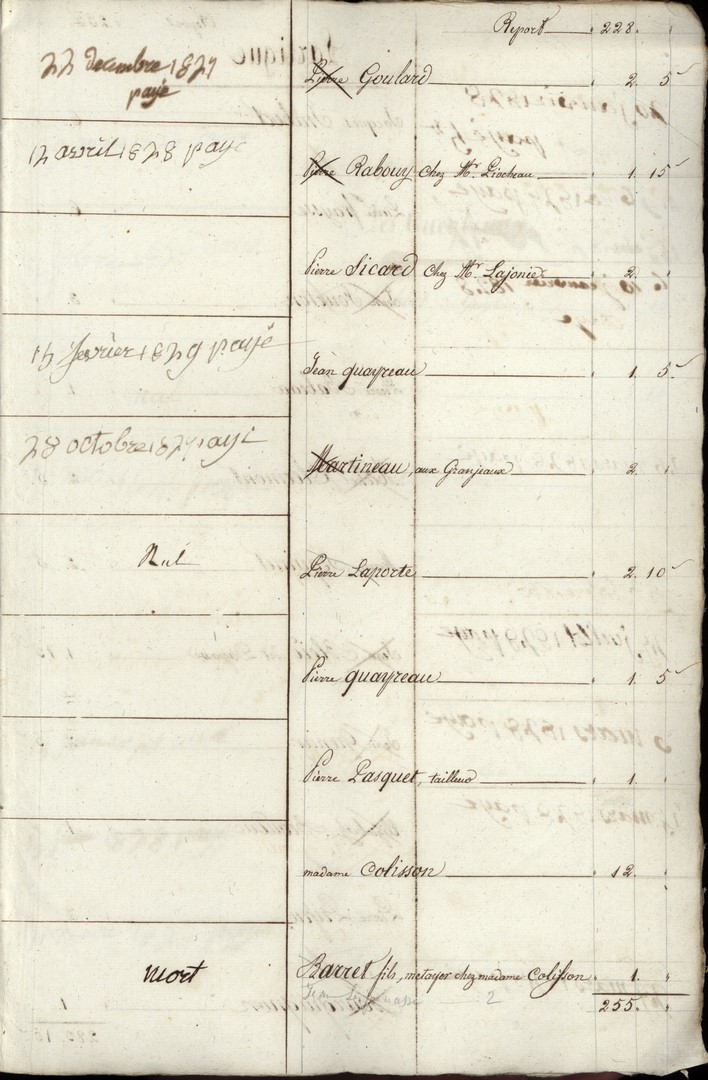 Report 228. "
22 decembre 1827
payé
Pierre Goulard 2. 5
12 avril 1828 payé
Pierre Rabouy chez Mr. Liocheau 1. 15
Pierre Sicard chez Mr. Lajonie 2. "
15 fevrier 1829 payé
Jean quayreau 1. 5
28 octobre 1827 payé
Martineau, aux Granjeaux 2. "
Nul
Pierre Laporte 2. 10
Pierre quayreau 1. 5
Pierre Pasquet, tailleur 1. "
madame Colisson 12. "
mort
Barret fils, metayer chez madame Colisson 1. "
2
255. "